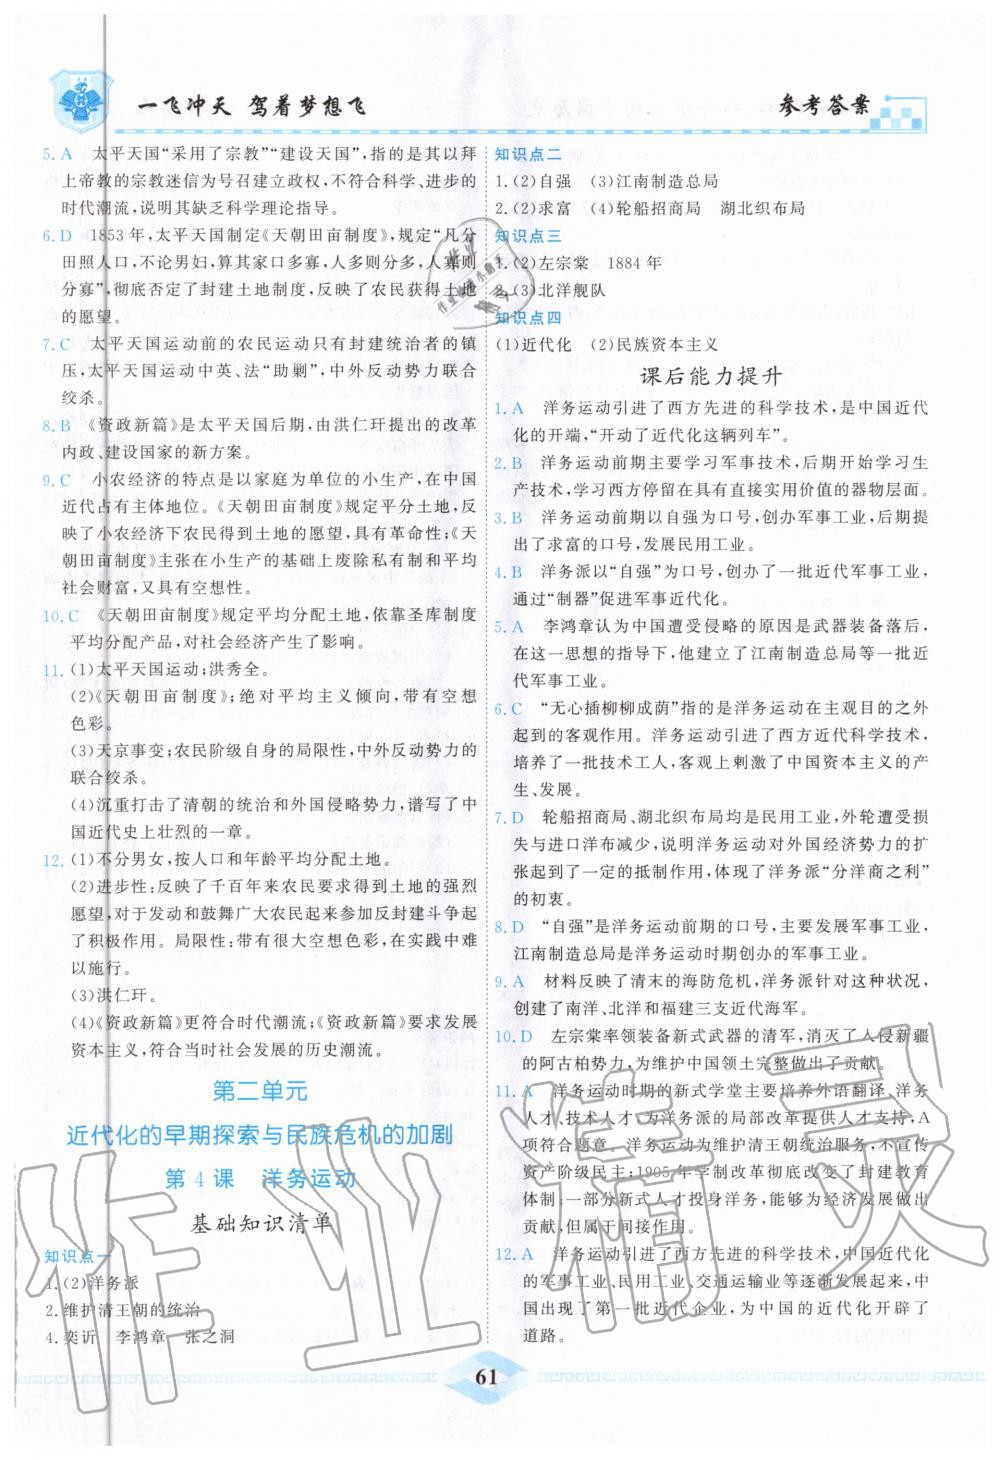 一飞冲天 驾着梦想飞
参考答案
5. A 太平天国“采用了宗教”“建设天国”,指的是其以拜
上帝教的宗教迷信为号召建立政权,不符合科学、进步的
时代潮流,说明其缺乏科学理论指导。
6. D 1853年,太平天国制定《天朝田亩制度》,规定“凡分
田照人口,不论男妇,算其家口多寡,人多则分多,人寡则
分寡”,彻底否定了封建土地制度,反映了农民获得土地
的愿望。
7. C 太平天国运动前的农民运动只有封建统治者的镇
压,太平天国运动中英、法“助剿”,中外反动势力联合
绞杀。
8. B 《资政新篇》是太平天国后期,由洪仁玕提出的改革
内政、建设国家的新方案。
9. C 小农经济的特点是以家庭为单位的小生产,在中国
近代占有主体地位。《天朝田亩制度》规定平分土地,反
映了小农经济下农民得到土地的愿望,具有革命性;《天
朝田亩制度》主张在小生产的基础上废除私有制和平均
社会财富,又具有空想性。
10. C 《天朝田亩制度》规定平均分配土地,依靠圣库制度
平均分配产品,对社会经济产生了影响。
11. (1)太平天国运动;洪秀全。
(2)《天朝田亩制度》;绝对平均主义倾向,带有空想
色彩。
(3)天京事变;农民阶级自身的局限性,中外反动势力的
联合绞杀。
(4)沉重打击了清朝的统治和外国侵略势力,谱写了中
国近代史上壮烈的一章。
12. (1)不分男女,按人口和年龄平均分配土地。
(2)进步性:反映了千百年来农民得到土地的强烈
愿望,对于发动和鼓舞广大农民起来参加反封建斗争起
了积极作用。局限性:带有很大空想色彩,在实践中难
以施行。
(3)洪仁玕。
(4)《资政新篇》更符合时代潮流;《资政新篇》要求发展
资本主义,符合当时社会发展的历史潮流。
第二单元
近代化的早期探索与民族危机的加剧
第4课 洋务运动
基础知识清单
知识点一
1. (2)洋务派
2. 维护清王朝的统治
4. 奕䜣 李鸿章 张之洞
知识点二
1. (2)自强 (3)江南制造总局
2. (2)求富 (4)轮船招商局 湖北织布局
知识点三
1. (2)左宗棠 1884年
2. (3)北洋舰队
知识点四
(1)近代化 (2)民族资本主义
课后能力提升
1. A 洋务运动引进了西方先进的科学技术,是中国近代
化的开端,“开动了近代化这辆列车”。
2. B 洋务运动前期主要学习军事技术,后期开始学习生
产技术,学习西方停留在具有直接实用价值的器物层面。
3. B 洋务运动前期以自强为口号,创办军事工业,后期提
出了求富的口号,发展民用工业。
4. B 洋务派以“自强”为口号,创办了一批近代军事工业,
通过“制器”促进军事近代化。
5. A 李鸿章认为中国遭受侵略的原因是武器装备落后,
在这一思想的指导下,他建立了江南制造总局等一批近
代军事工业。
6. C “无心插柳柳成荫”指的是洋务运动在主观目的之外
起到的客观作用。洋务运动引进了西方近代科学技术,
培养了一批技术工人,客观上刺激了中国资本主义的产
生、发展。
7. D 轮船招商局、湖北织布局均是民用工业,外轮遭受损
失与进口洋布减少,说明洋务运动对外国经济势力的扩
张起到了一定的抵制作用,体现了洋务派“分洋商之利”
的初衷。
8. D “自强”是洋务运动前期的口号,主要发展军事工业,
江南制造总局是洋务运动时期创办的军事工业。
9. A 材料反映了清末的海防危机,洋务派针对这种状况,
创建了南洋、北洋和福建三支近代海军。
10. D 左宗棠率领装备新式武器的清军,消灭了入侵新疆
的阿古柏势力,为维护中国领土完整做出了贡献。
11. A 洋务运动时期的新式学堂主要培养外语翻译、洋务
人才、技术人才,为洋务派的局部改革提供人才支持,A
项符合题意。洋务运动为维护清王朝统治服务,不宣传
资产阶级民主;1905年学制改革彻底改变了封建教育
体制,一部分新式人才投身洋务,能够为经济发展做出
贡献,但属于间接作用。
12. A 洋务运动引进了西方先进的科学技术,中国近代化
的军事工业、民用工业、交通运输业等逐渐发展起来,中
国出现了第一批近代企业,为中国的近代化开辟了
道路。
61